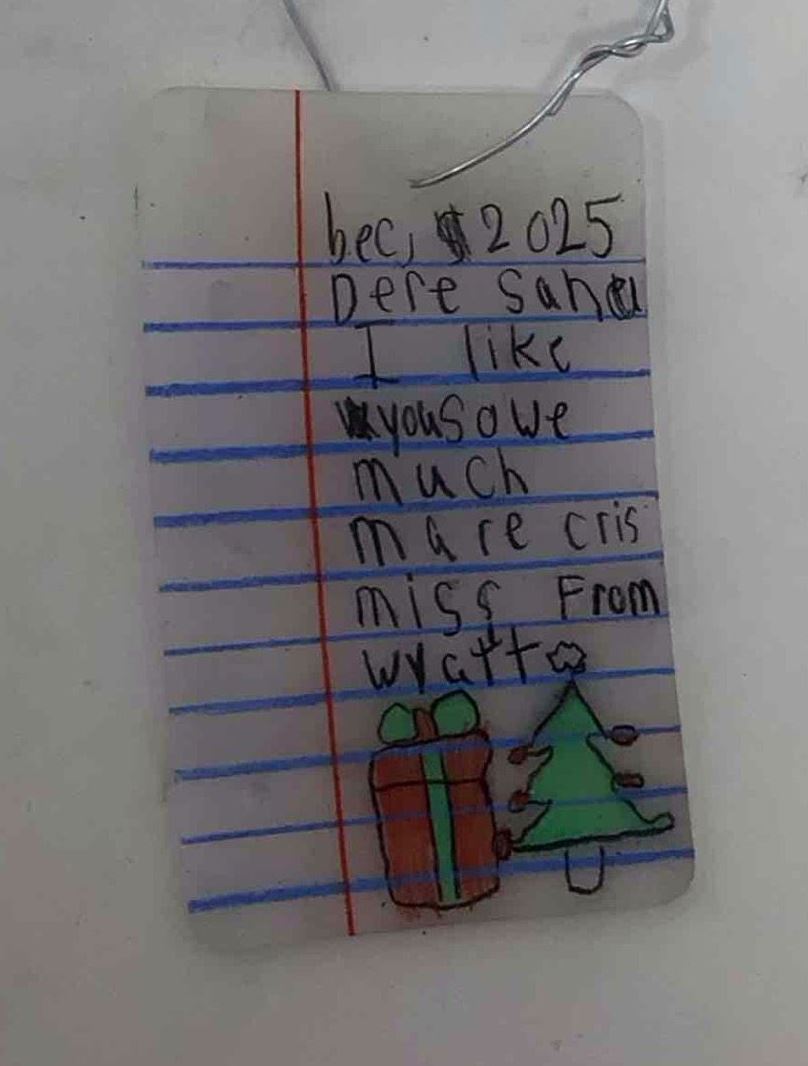 bec, 2 2025
Dere Sana
I like
yousowe
much
mare cris
miss From
wyatt